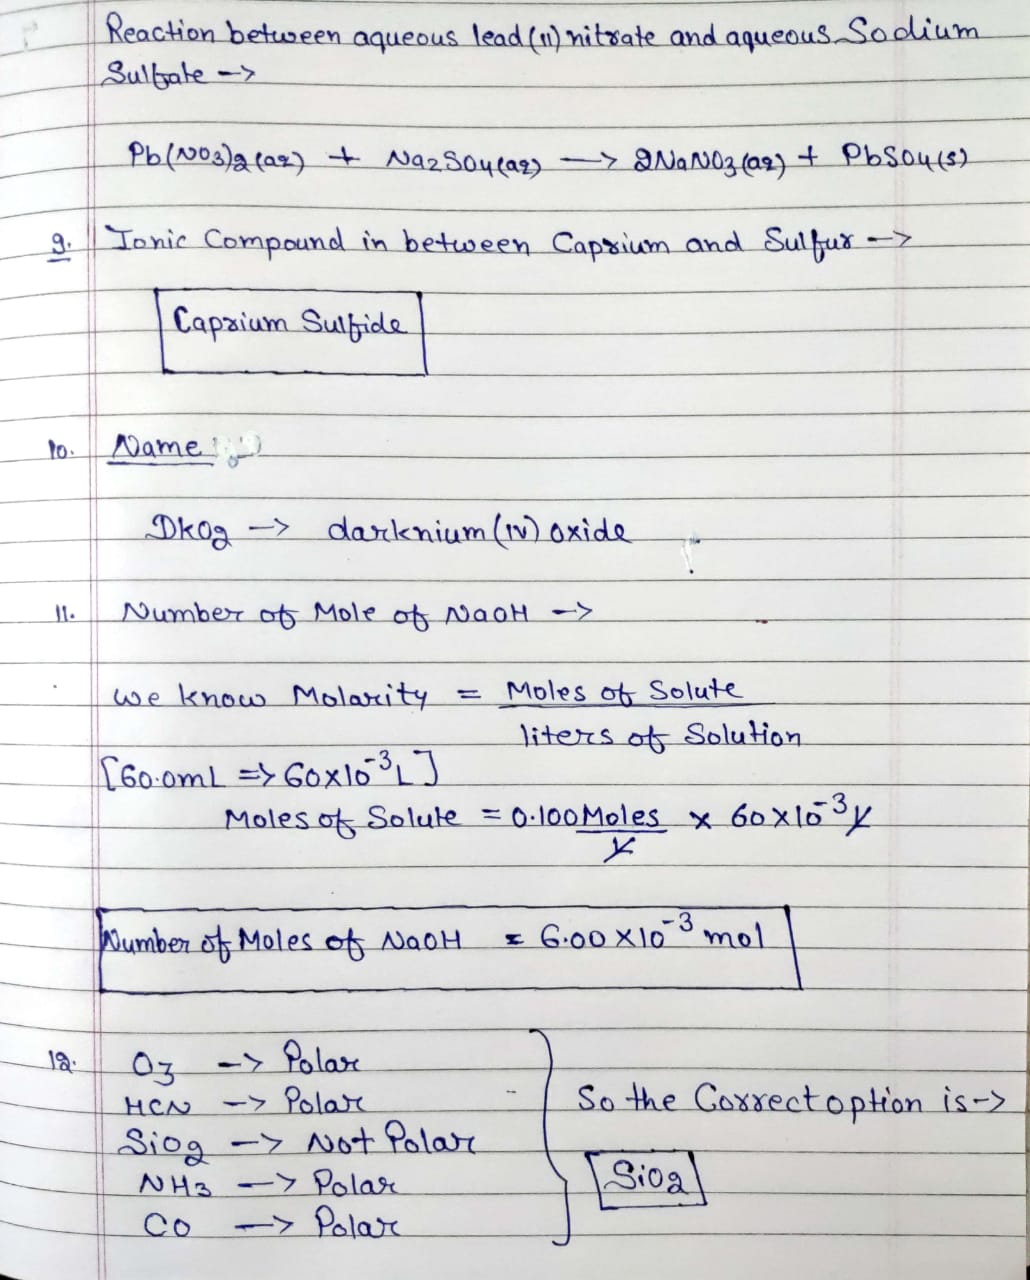 Reaction between aqueous lead(II) nitrate and aqueous Sodium
Sulfate ->
Pb(NO3)2(aq) + Na2SO4(aq) -> 2NaNO3(aq) + PbSO4(s)
9. Ionic Compound in between Caprium and Sulfur ->
Caprium Sulfide
10. Name
DkO2 -> darknium(IV) oxide
11. Number of Mole of NaOH ->
we know Molarity = Moles of Solute
liters of Solution
[60.0mL => 60x10^-3 L]
Moles of Solute = 0.100 Moles x 60x10^-3 L
L
Number of Moles of NaOH = 6.00x10^-3 mol
12. O3 -> Polar
HCN -> Polar
SiO2 -> Not Polar
NH3 -> Polar
CO -> Polar
So the Correct option is ->
SiO2